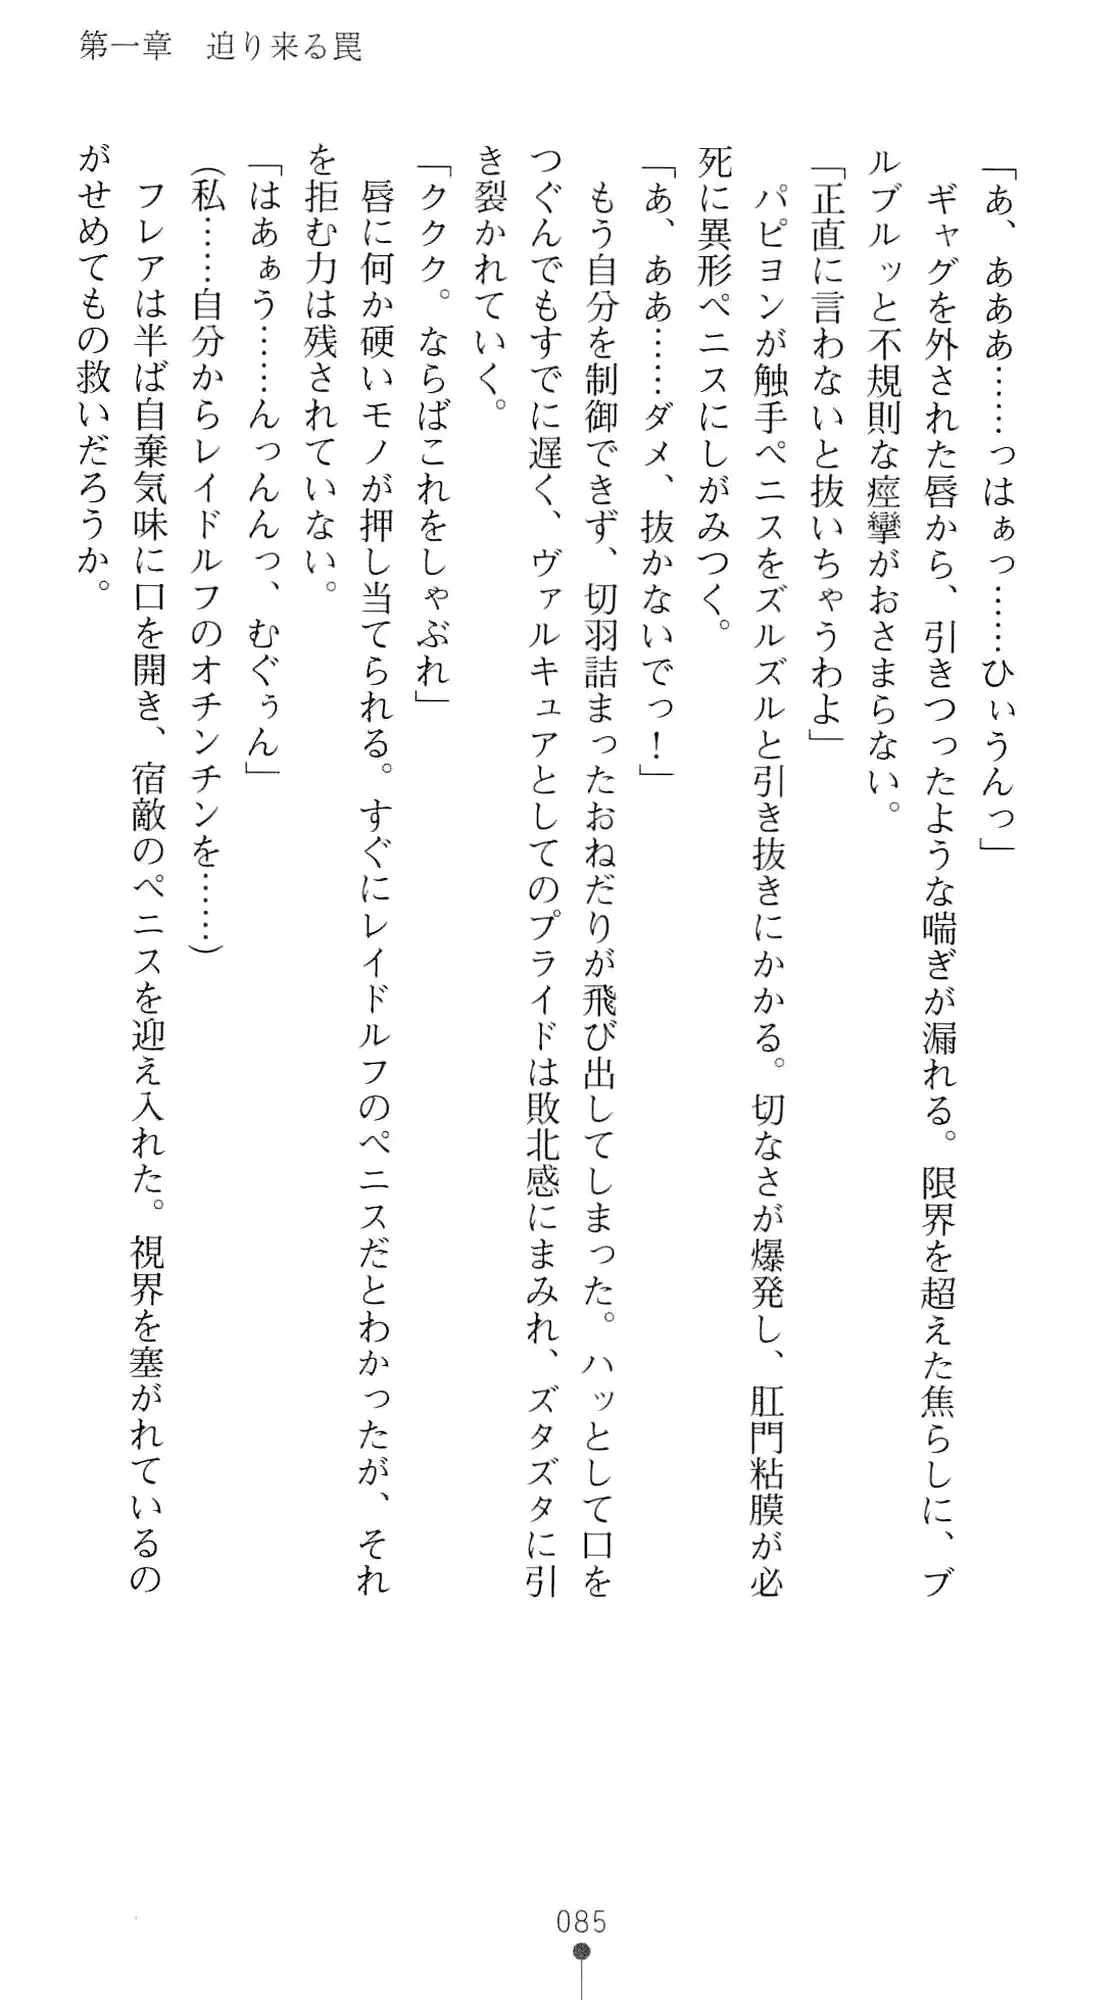 第一章　迫り来る罠
「あ、あああ……っはぁっ……ひぃうんっ」
　ギャグを外された唇から、引きつったような喘ぎが漏れる。限界を超えた焦らしに、ブ
ルブルッと不規則な痙攣がおさまらない。
「正直に言わないと抜いちゃうわよ」
　パピヨンが触手ペニスをズルズルと引き抜きにかかる。切なさが爆発し、肛門粘膜が必
死に異形ペニスにしがみつく。
「あ、ああ……ダメ、抜かないでっ！」
　もう自分を制御できず、切羽詰まったおねだりが飛び出してしまった。ハッとして口を
つぐんでもすでに遅く、ヴァルキュアとしてのプライドは敗北感にまみれ、ズタズタに引
き裂かれていく。
「ククク。ならばこれをしゃぶれ」
　唇に何か硬いモノが押し当てられる。すぐにレイドルフのペニスだとわかったが、それ
を拒む力は残されていない。
「はあぁう……んっんんっ、むぐぅん」
（私……自分からレイドルフのオチンチンを……）
　フレアは半ば自棄気味に口を開き、宿敵のペニスを迎え入れた。視界を塞がれているの
がせめてもの救いだろうか。
085